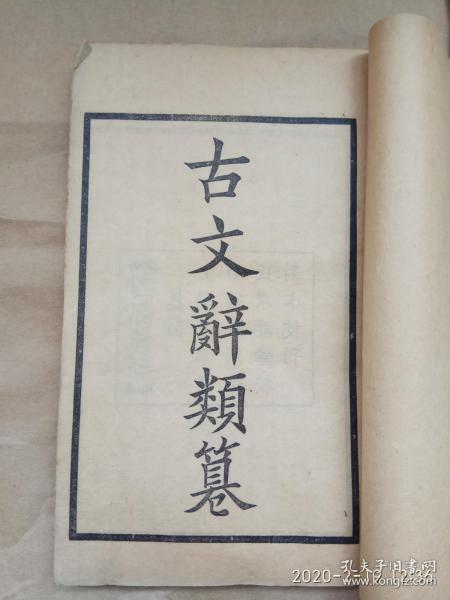 古文辭類篹
孔夫子旧书网
www.kongfz.com